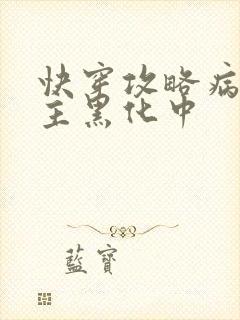 快穿攻略病
主黑化中
藍寶